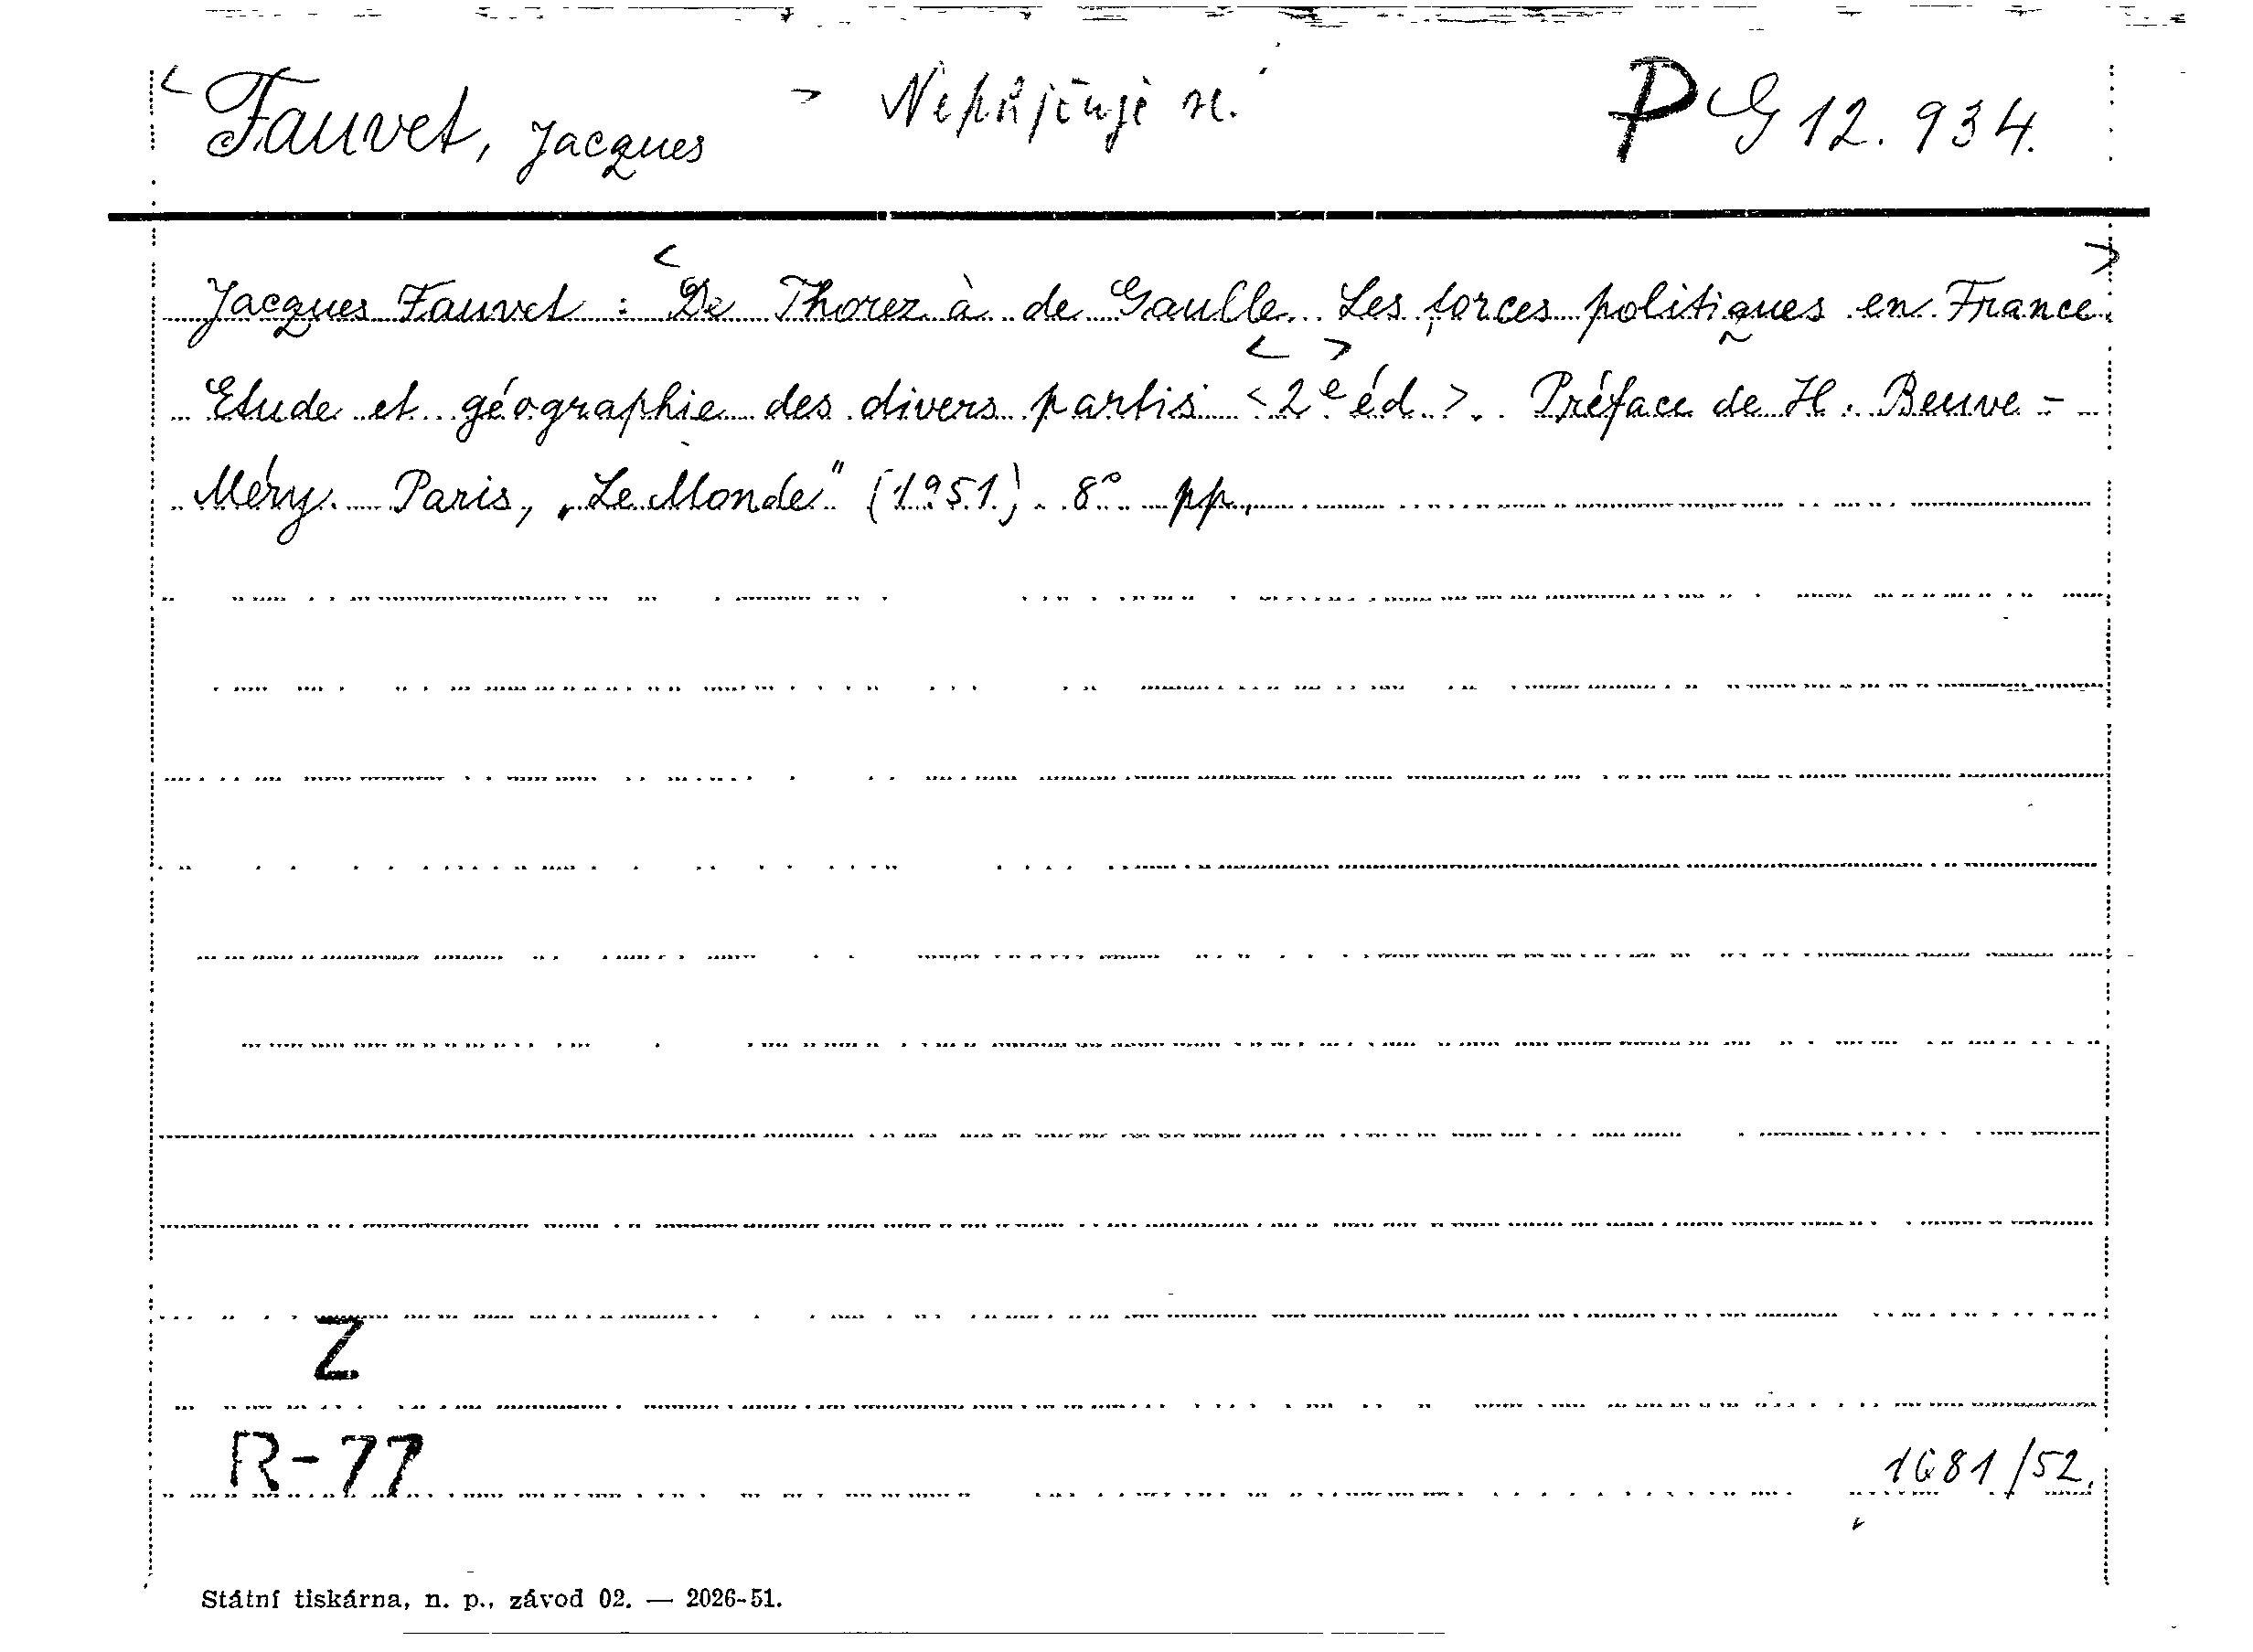 Fauvet, Jacques Nepůjčuje se. P G 12.934.
Jacques Fauvet : De Thorez à de Gaulle. Les forces politiques en France.
Etude et géographie des divers partis <2e éd.>. Préface de H. Beuve-
Méry. Paris, „Le Monde" (1951). 8° pp.
Z
R-77
1681/52.
Státní tiskárna, n. p., závod 02. — 2026-51.